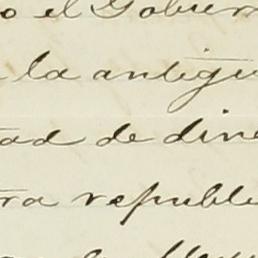 o el Gobier
la antigu
ad de dine
ra republi